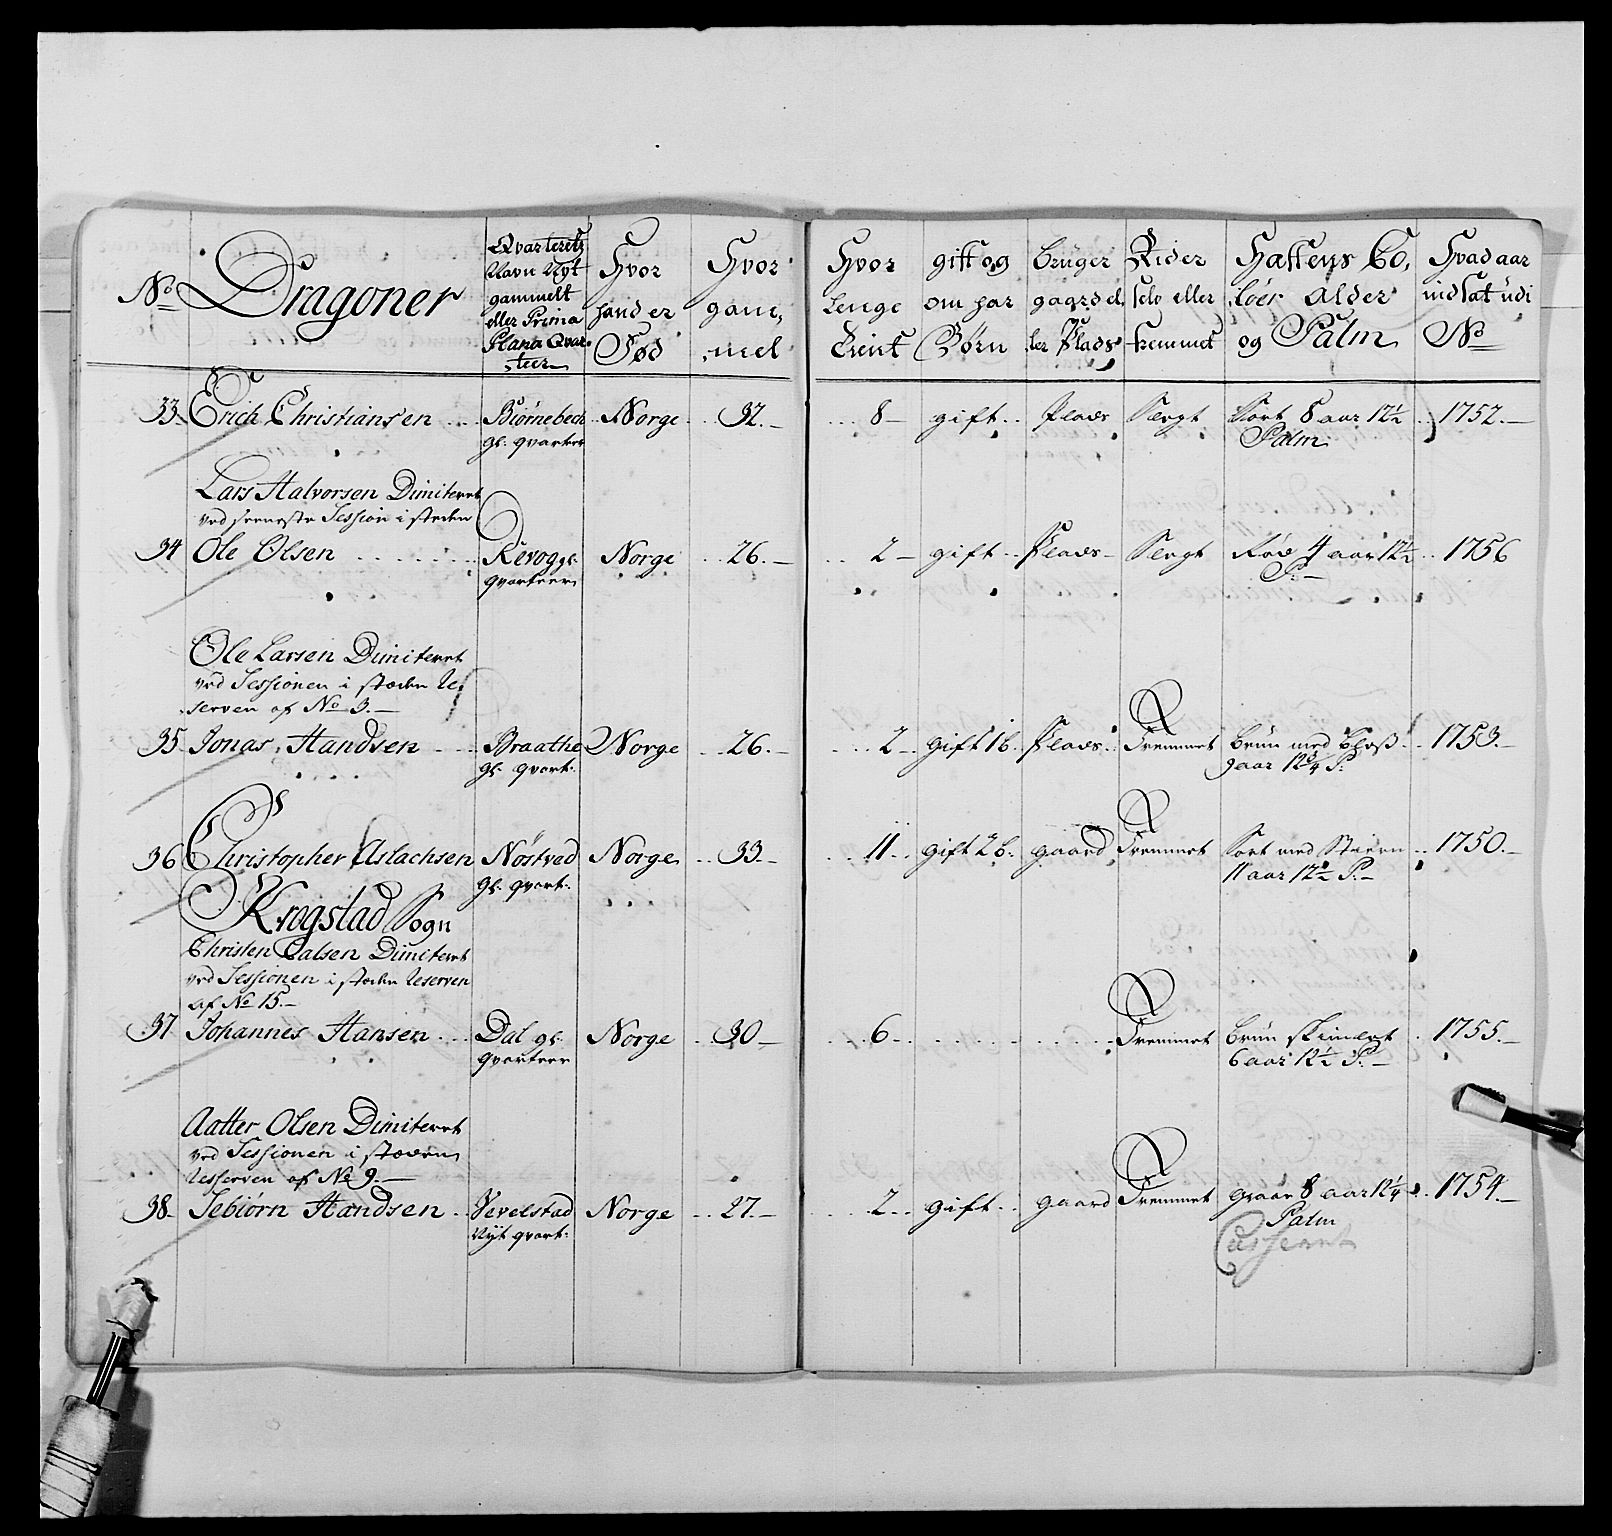 No Dragoner
Qvarterets
Navn Nyt
gammelt
eller Prima
Plana Qvar-
teer
Hvor
hand er
Fød
Hvor
gam,
mel
Hvor
Lenge
Tient
gift og
om har
Børn
bruger
gaard el,
ler Plads
Rider
selv eller
fremmet
Hæstens Co,
løer Alder
og Palm
Hvad aar
indsat udi
No
33. Erich Christiansen Biørnebech Norge 32. 8 gift Plads Sergt Sort 8 aar 12½ 1752.
gl. qvarteer Palm
Lars Halvorsen Dimiteret
ved seeneste Session i steden
34 Ole Olsen Revog gl. Norge 26. 2 gift Plads Sergt Rød 4 aar 12½ 1756
qvarteer P:
Ole Larsen Dimiteret
ved Sessionen i stæden Re,
serven af No 3.
35 Jonas Handsen Braathe Norge 26. 2 gift 1 b. Plads Fremmet brun med bless 1753.
gl. qvart: 9 aar 12¾ P:
36 Christopher Aslachsen Nøstvad Norge 33. 11 gift 2 b. gaard Fremmet Sort med Stiern 1750.
gl. qvart: 11 aar 12½ P:
Krogstad Sogn
Christen Calsen Dimiteret
ved Sessionen i stæden Reserven
af No 15.
37 Johannes Hansen Dal gl. Norge 30 6 Fremmet brun skimlet 1755.
qvarteer 6 aar 12½ P:
Aatter Olsen Dimiteret
ved Sessionen i stæden
Resserven af No 9.
38 Jebiørn Handsen Vevelstad Norge 27. 2 gift gaard Fremmet graae 8 aar 12¼ 1754.
Nyt qvart: Palm
Casseret